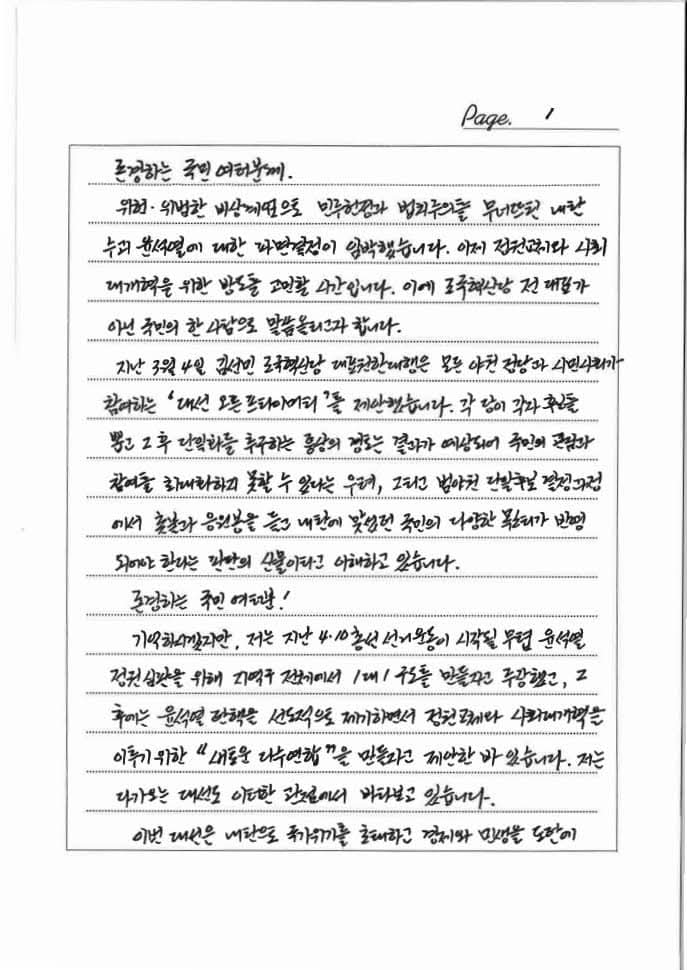 Page. 1
존경하는 국민 여러분께.
위헌·위법한 비상계엄으로 민주헌정과 법치주의를 무너뜨린 내란
수괴 윤석열에 대한 파면결정이 임박했습니다. 이제 정권교체와 사회
대개혁을 위한 방도를 고민할 시간입니다. 이에 조국혁신당 전 대표가
아닌 국민의 한 사람으로 말씀올리고자 합니다.
지난 3월 4일 김선민 조국혁신당 대표권한대행은 모든 야권 정당과 시민사회가
참여하는 '대선 오픈프라이머리'를 제안했습니다. 각 당이 각자 후보를
뽑고 그 후 단일화를 추구하는 통상의 경로는 결과가 예상되어 국민의 관심과
참여를 최대화하지 못할 수 있다는 우려, 그리고 범야권 단일후보 결정과정
에서 촛불과 응원봉을 들고 내란에 맞섰던 국민의 다양한 목소리가 반영
되어야 한다는 판단의 산물이라고 이해하고 있습니다.
존경하는 국민 여러분!
기억하시겠지만, 저는 지난 4·10 총선 선거운동이 시작될 무렵 윤석열
정권 심판을 위해 지역구 전체에서 1대1 구도를 만들자고 주장했고, 그
후에는 윤석열 탄핵을 선도적으로 제기하면서 정권교체와 사회대개혁을
이루기 위한 "새로운 다수연합"을 만들자고 제안한 바 있습니다. 저는
다가오는 대선도 이러한 관점에서 바라보고 있습니다.
이번 대선은 내란으로 국가위기를 초래하고 경제와 민생을 도탄에